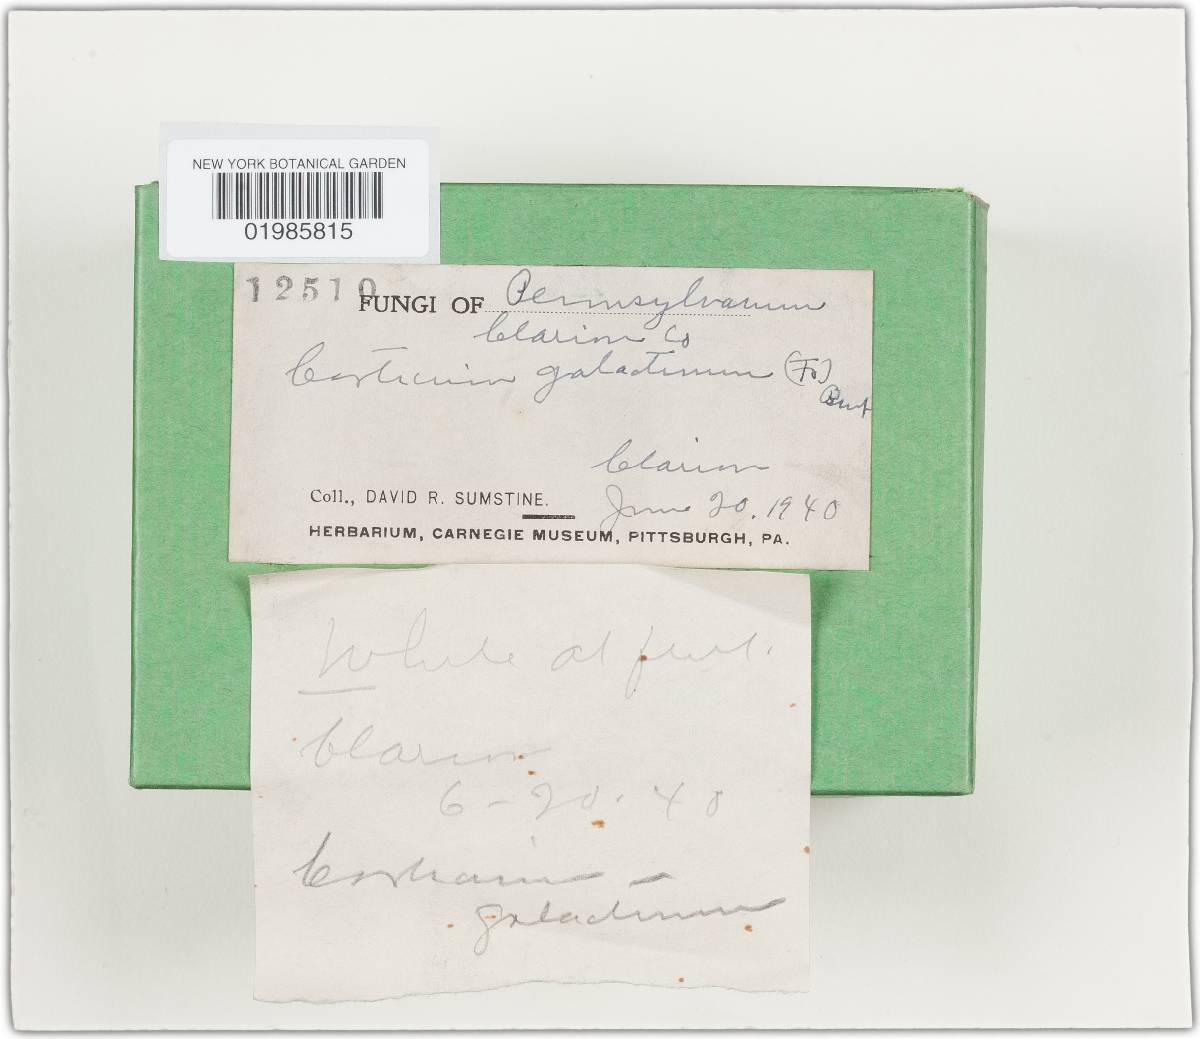 NEW YORK BOTANICAL GARDEN
01985815
12510
FUNGI OF Pennsylvania
Clarion Co
Corticium galactinum (Fr)
Burt
Clarion
Coll., DAVID R. SUMSTINE. June 20, 1940
HERBARIUM, CARNEGIE MUSEUM, PITTSBURGH, PA.
White at first.
Clarion
6-20.40
Corticium -
galactinum